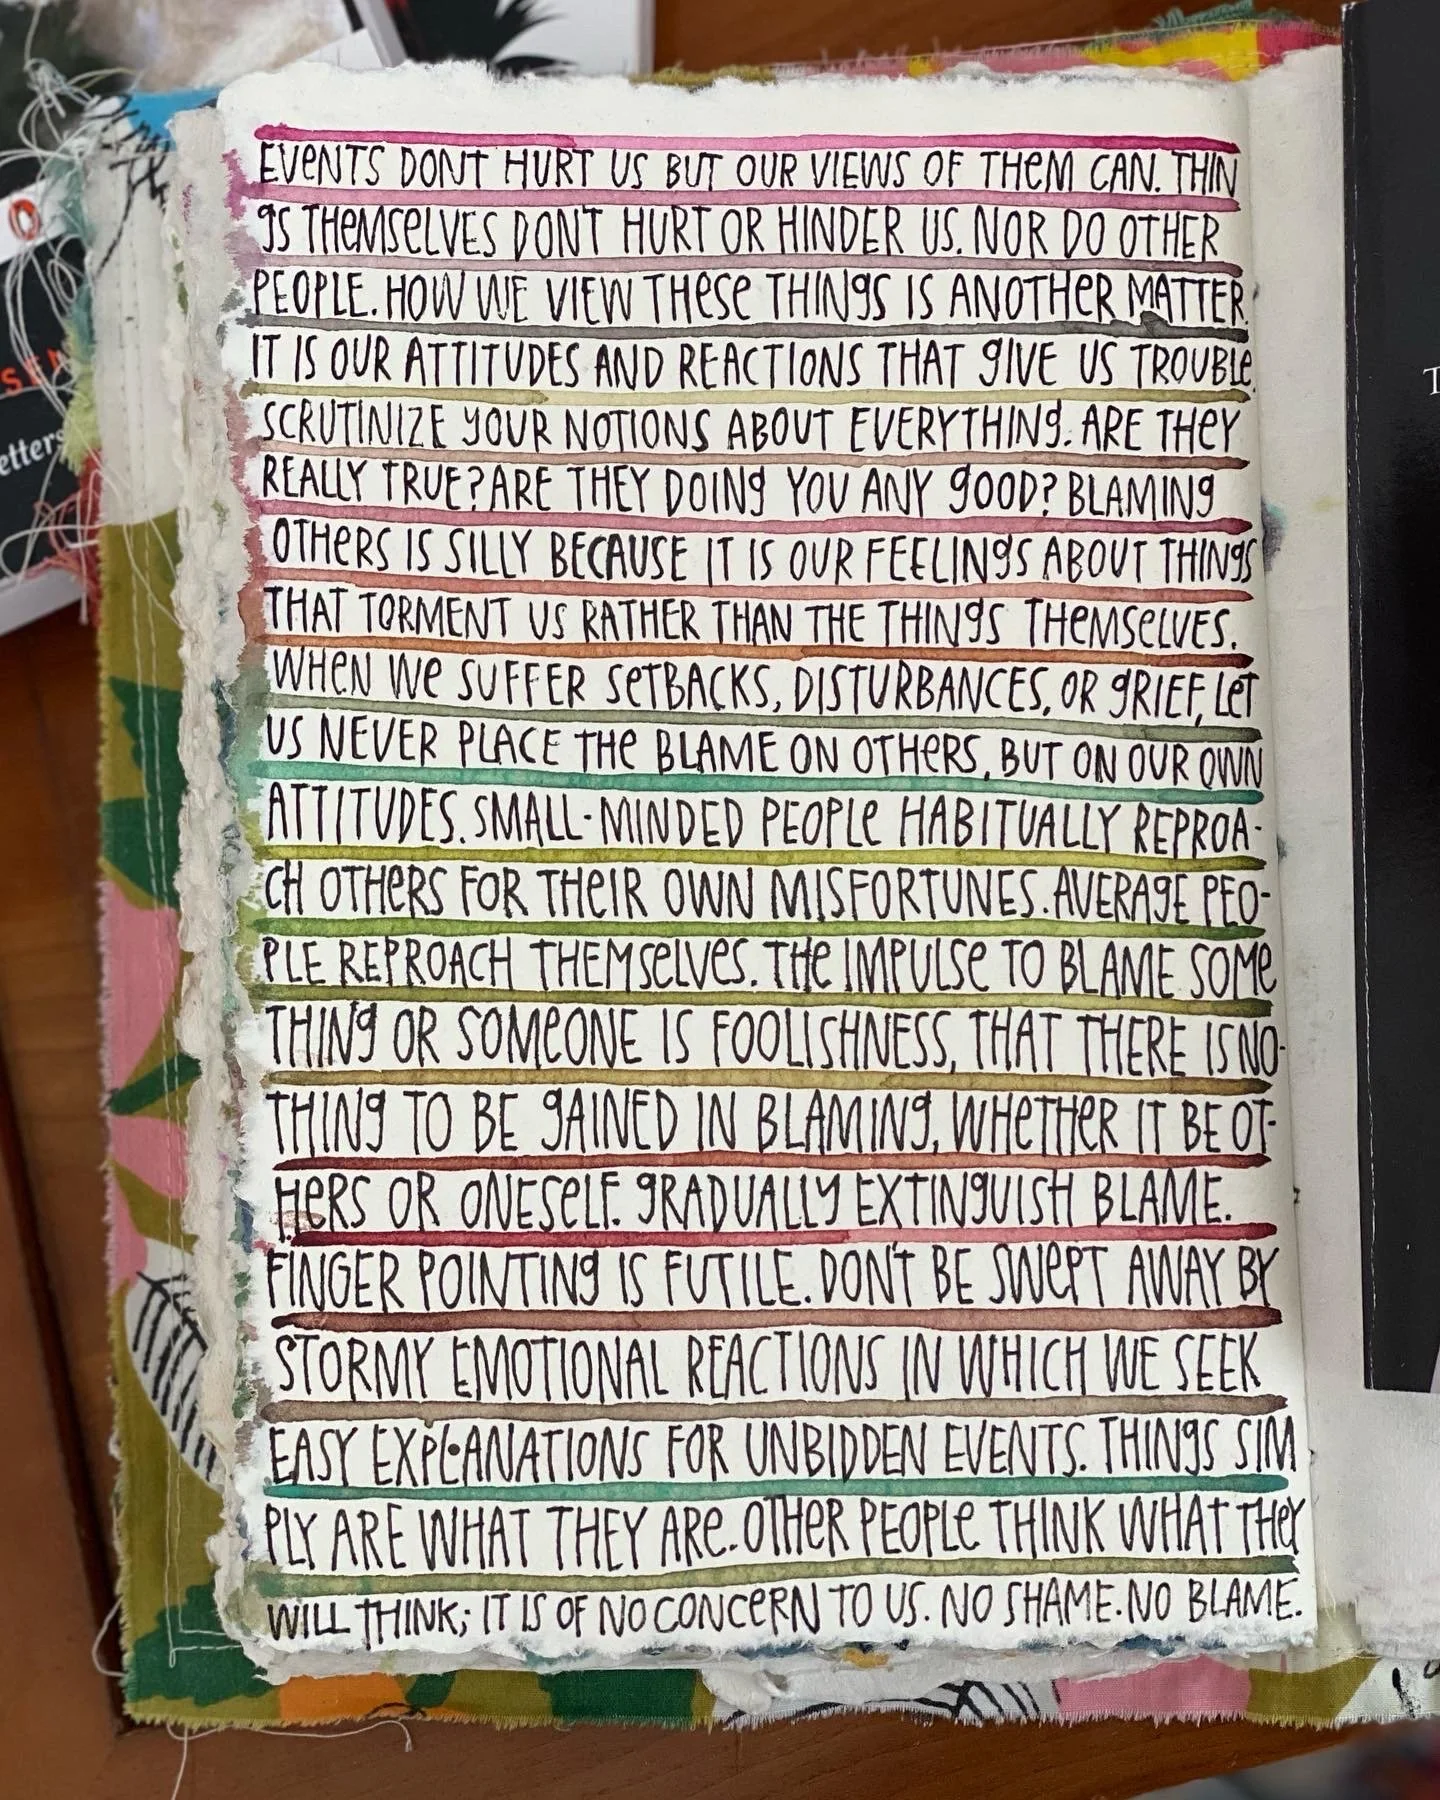 EVENTS DONT HURT US BUT OUR VIEWS OF THEM CAN. THIN
GS THEMSELVES DON'T HURT OR HINDER US. NOR DO OTHER
PEOPLE. HOW WE VIEW THESE THINGS IS ANOTHER MATTER.
IT IS OUR ATTITUDES AND REACTIONS THAT GIVE US TROUBLE.
SCRUTINIZE YOUR NOTIONS ABOUT EVERYTHING. ARE THEY
REALLY TRUE? ARE THEY DOING YOU ANY GOOD? BLAMING
OTHERS IS SILLY BECAUSE IT IS OUR FEELINGS ABOUT THINGS
THAT TORMENT US RATHER THAN THE THINGS THEMSELVES.
WHEN WE SUFFER SETBACKS, DISTURBANCES, OR GRIEF, LET
US NEVER PLACE THE BLAME ON OTHERS, BUT ON OUR OWN
ATTITUDES. SMALL-MINDED PEOPLE HABITUALLY REPROA-
CH OTHERS FOR THEIR OWN MISFORTUNES. AVERAGE PEO-
PLE REPROACH THEMSELVES. THE IMPULSE TO BLAME SOME
THING OR SOMEONE IS FOOLISHNESS, THAT THERE IS NO-
THING TO BE GAINED IN BLAMING, WHETHER IT BE OT-
HERS OR ONESELF. GRADUALLY EXTINGUISH BLAME.
FINGER POINTING IS FUTILE. DON'T BE SWEPT AWAY BY
STORMY EMOTIONAL REACTIONS IN WHICH WE SEEK
EASY EXPLANATIONS FOR UNBIDDEN EVENTS. THINGS SIM
PLY ARE WHAT THEY ARE. OTHER PEOPLE THINK WHAT THEY
WILL THINK; IT IS OF NO CONCERN TO US. NO SHAME. NO BLAME.